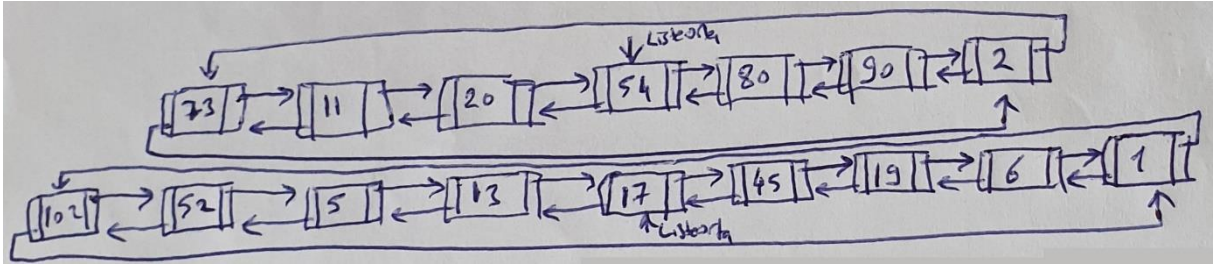 Listeorta
73 11 20 54 80 90 2
102 52 5 13 17 45 19 6 1
Listeorta